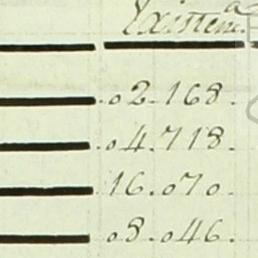 Existenª
.02.168.
.04.718.
16.070.
.08.046.